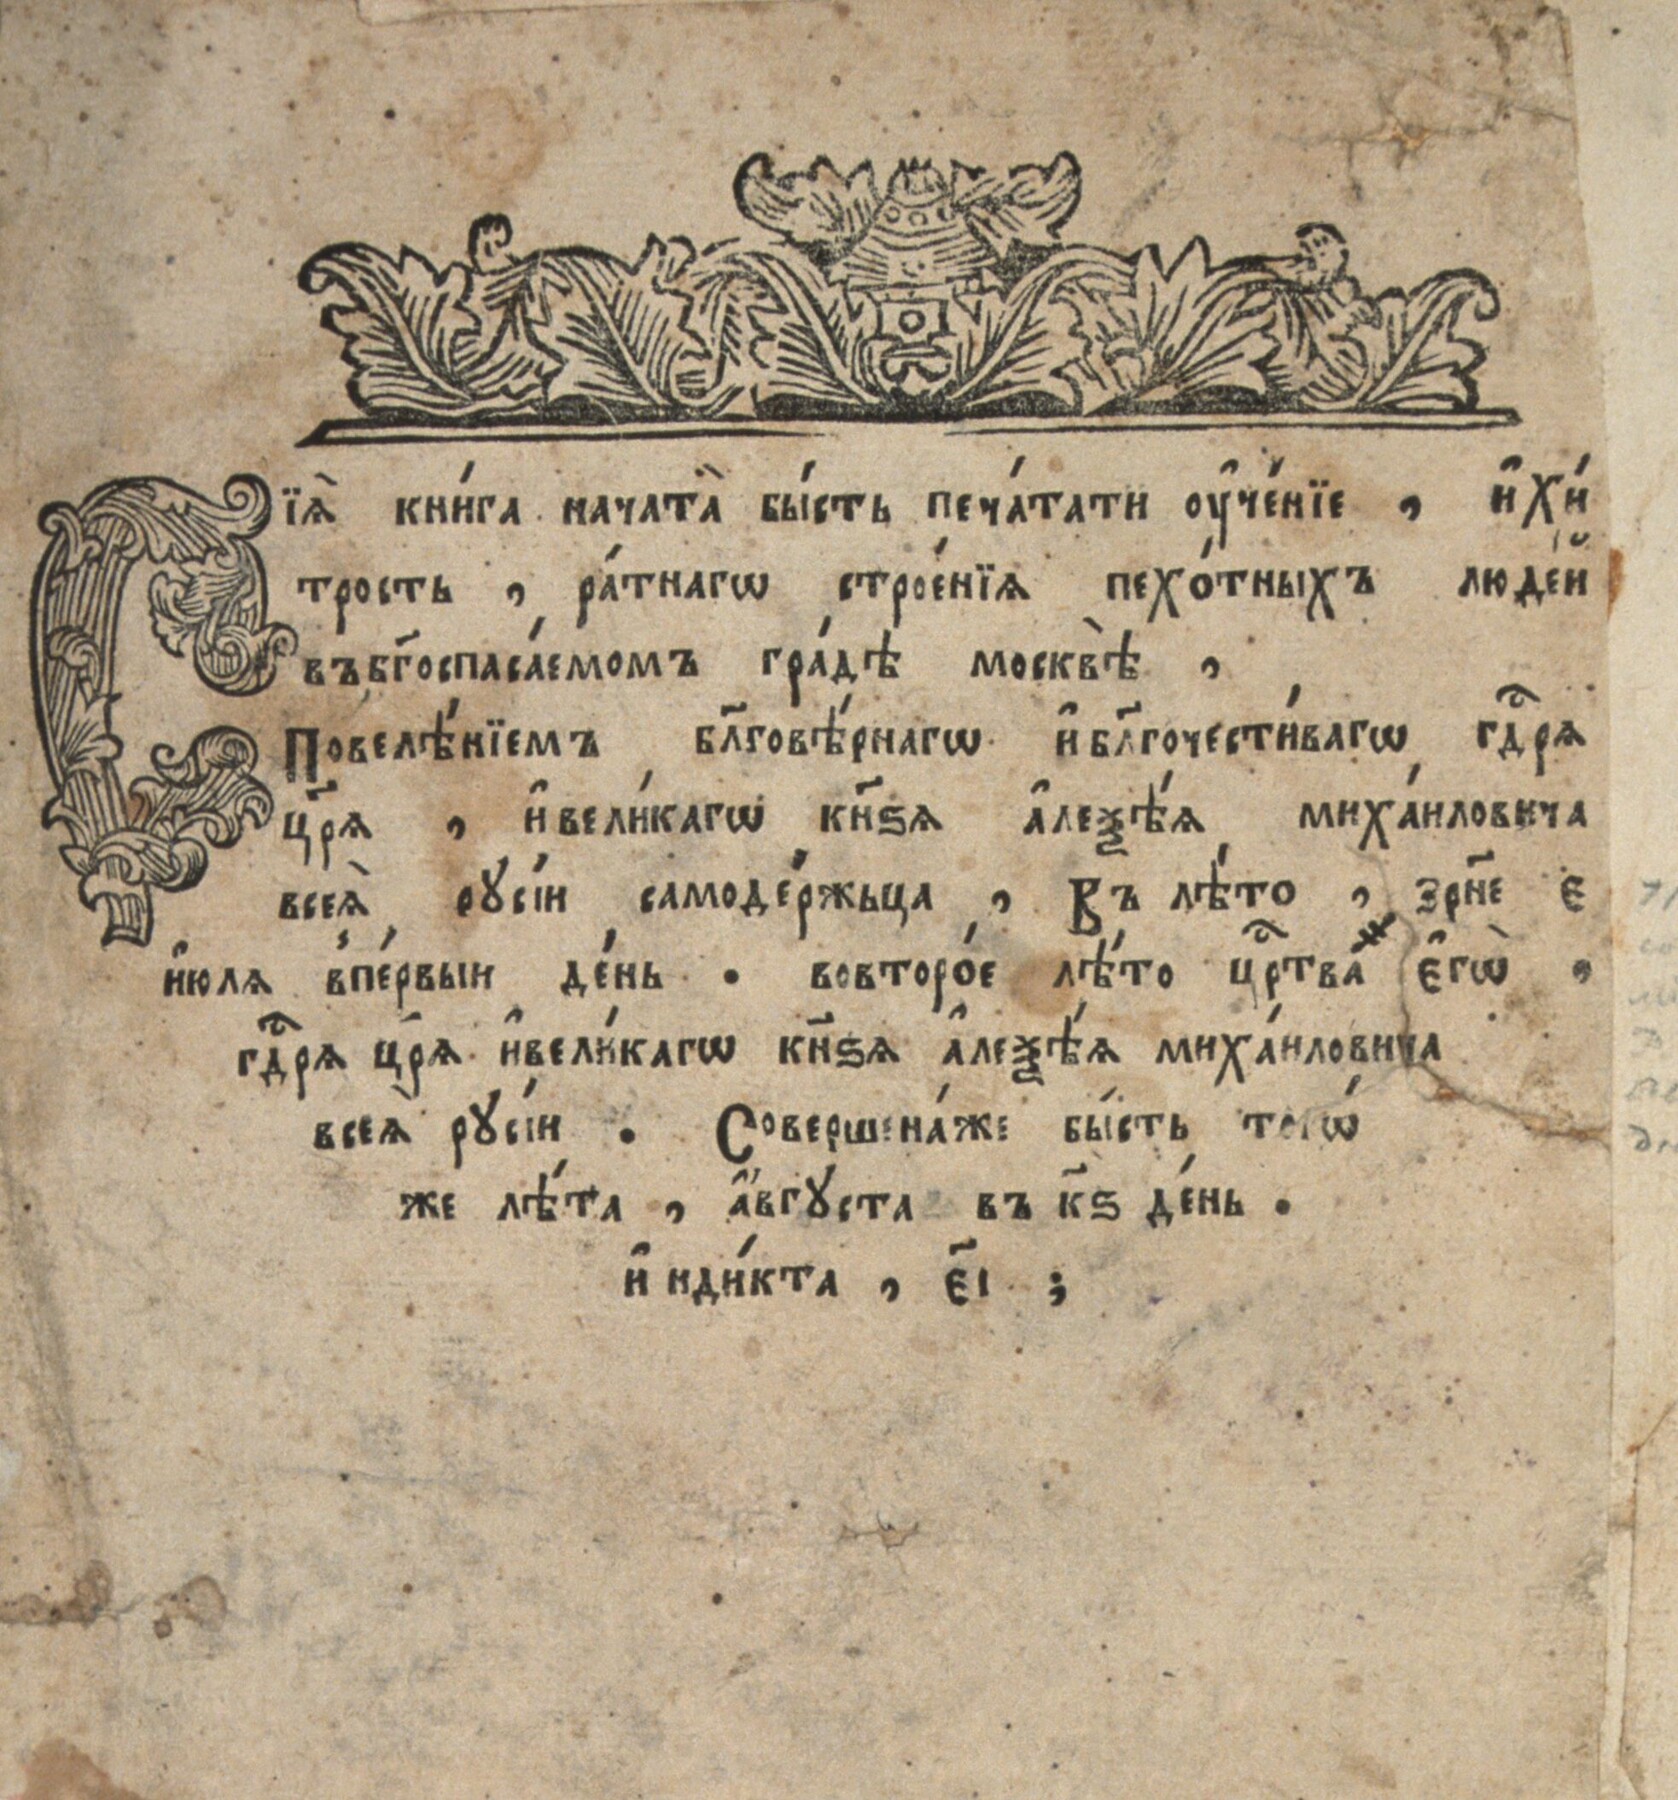 Сїѧ̀ кни́га начата̀ бы́сть печа́тати ᲂу҆че́нїе , и҆ хи́
трость , ра́тнагѡ строе́нїѧ пехо́тныхъ люде́й
въ бг҃оспаса́емомъ гра́дѣ москвѣ̀ ,
Повелѣ́нїемъ бл҃говѣ́рнагѡ и҆ бл҃гочести́вагѡ гдⷭ҇рѧ
цр҃ѧ , и҆ вели́кагѡ кн҃ѕѧ а҆леѯѣ́ѧ миха́иловича
всеѧ̀ рꙋсі́и самоде́ржьца , Въ лѣ́то , ҂зрн҃е е
и҆юлѧ в пе́рвыи де́нь . во второ́е лѣ́то црⷭ҇тва є҆гѡ̀ ,
гдⷭ҇рѧ цр҃ѧ и҆ вели́кагѡ кн҃ѕѧ а҆леѯѣ́ѧ миха́иловича
всеѧ̀ рꙋсі́и . Соверше́на́же бы́сть тогѡ́
же лѣ́та , а҆́вгꙋста въ к҃ѕ де́нь .
и҆нди́кта , є҃і ;